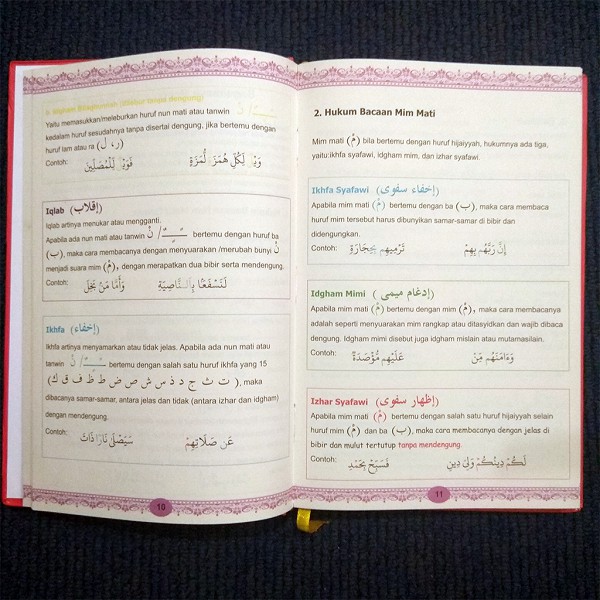 b. Idgham Bilaghunnah (disebut tanpa dengung)
Yaitu memasukkan/meleburkan huruf nun mati atau tanwin ـًـٍـٌ / نْ
kedalam huruf sesudahnya tanpa disertai dengung, jika bertemu dengan
huruf lam atau ra (ر، ل)
Contoh: وَيْلٌ لِّكُلِّ هُمَزَةٍ لُّمَزَةٍ فَوَيْلٌ لِّلْمُصَلِّينَ
Iqlab (إقلاب)
Iqlab artinya menukar atau mengganti.
Apabila ada nun mati atau tanwin ـًـٍـٌ / نْ bertemu dengan huruf ba
(ب), maka cara membacanya dengan menyuarakan /merubah bunyi نْ
menjadi suara mim (مْ), dengan merapatkan dua bibir serta mendengung.
Contoh: لَنَسْفَعًا بِالنَّاصِيَةِ وَأَمَّا مَنْ بَخِلَ
Ikhfa (إخفاء)
Ikhfa artinya menyamarkan atau tidak jelas. Apabila ada nun mati atau
tanwin ـًـٍـٌ / نْ bertemu dengan salah satu huruf ikhfa yang 15
(ت ث ج د ذ س ش ص ض ط ظ ف ق ك), maka
dibacanya samar-samar, antara jelas dan tidak (antara izhar dan idgham)
dengan mendengung.
Contoh: عَن صَلَاتِهِمْ سَيَصْلَىٰ نَارًا ذَاتَ
10
2. Hukum Bacaan Mim Mati
Mim mati (مْ) bila bertemu dengan huruf hijaiyyah, hukumnya ada tiga,
yaitu:ikhfa syafawi, idgham mim, dan izhar syafawi.
Ikhfa Syafawi (إخفاء سفوى)
Apabila mim mati (مْ) bertemu dengan ba (ب), maka cara membaca
huruf mim tersebut harus dibunyikan samar-samar di bibir dan
didengungkan.
Contoh: إِنَّ رَبَّهُم بِهِمْ تَرْمِيهِم بِحِجَارَةٍ
Idgham Mimi (إدغام ميمى)
Apabila mim mati (مْ) bertemu dengan mim (م), maka cara membacanya
adalah seperti menyuarakan mim rangkap atau ditasyidkan dan wajib dibaca
dengung. Idgham mimi disebut juga idgham mislain atau mutamasilain.
Contoh: وَءَامَنَهُم مِّنْ عَلَيْهِم مُّؤْصَدَةٌ
Izhar Syafawi (إظهار سفوى)
Apabila mim mati (مْ) bertemu dengan salah satu huruf hijaiyyah selain
huruf mim (م) dan ba (ب), maka cara membacanya dengan jelas di
bibir dan mulut tertutup tanpa mendengung.
Contoh: لَكُمْ دِينُكُمْ وَلِىَ دِينِ فَسَبِّحْ بِحَمْدِ
11